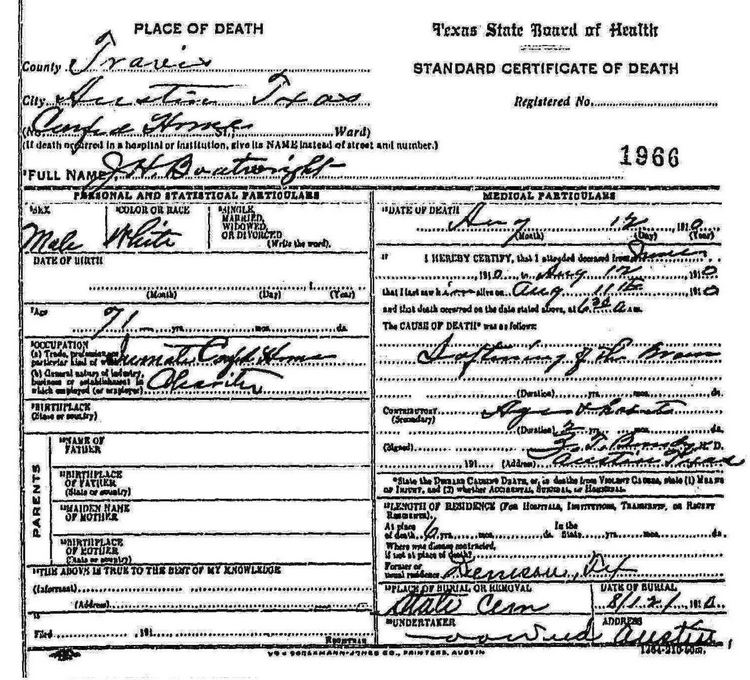 PLACE OF DEATH
County Travis
City Austin Texas
(No. Confed Home St.; Ward)
(If death occurred in a hospital or institution, give its NAME instead of street and number.)
²FULL NAME J. H. Boatwright
Texas State Board of Health
STANDARD CERTIFICATE OF DEATH
Registered No.
1966
PERSONAL AND STATISTICAL PARTICULARS
³SEX
Male
⁴COLOR OR RACE
White
⁵SINGLE,
MARRIED,
WIDOWED,
OR DIVORCED
(Write the word).
DATE OF BIRTH
(Month) (Day) (Year)
⁷Age 71 yrs. mos. ds.
⁸OCCUPATION
(a) Trade, profession or
particular kind of work Inmate Confed. Home
(b) General nature of industry,
business or establishment in
which employed (or employer) Charity
⁹BIRTHPLACE
(State or country)
PARENTS
¹⁰NAME OF
FATHER
¹¹BIRTHPLACE
OF FATHER
(State or country)
¹²MAIDEN NAME
OF MOTHER
¹³BIRTHPLACE
OF MOTHER
(State or country)
¹⁴THE ABOVE IS TRUE TO THE BEST OF MY KNOWLEDGE
(Informant)
(Address)
15
Filed 191
REGISTRAR
MEDICAL PARTICULARS
¹⁶DATE OF DEATH Aug 12 1910
(Month) (Day) (Year)
17 I HEREBY CERTIFY, that I attended deceased from
1910 to Aug 12, 1910
that I last saw him alive on Aug 11th, 1910
and that death occurred on the date stated above, at 6 30 a m.
The CAUSE OF DEATH* was as follows:
Softening of the Brain
(Duration) yrs. mos. ds.
CONTRIBUTORY Age &
(Secondary)
(Duration) 2 yrs. mos. ds.
(Signed) M. D.
191 (Address) Austin Texas
*State the DISEASE CAUSING DEATH, or, in deaths from VIOLENT CAUSES, state (1) MEANS
OF INJURY, and (2) whether ACCIDENTAL, SUICIDAL, or HOMICIDAL.
¹⁸LENGTH OF RESIDENCE (FOR HOSPITALS, INSTITUTIONS, TRANSIENTS, OR RECENT
RESIDENTS).
At place In the
of death 6 yrs. mos. ds. State yrs. mos. ds.
Where was disease contracted,
if not at place of death?
Former or
usual residence Denison, Tex
¹⁹PLACE OF BURIAL OR REMOVAL
State Cem
DATE OF BURIAL
8/12/, 1910
²⁰UNDERTAKER
ADDRESS
Austin
VON BOECKMANN-JONES CO., PRINTERS, AUSTIN